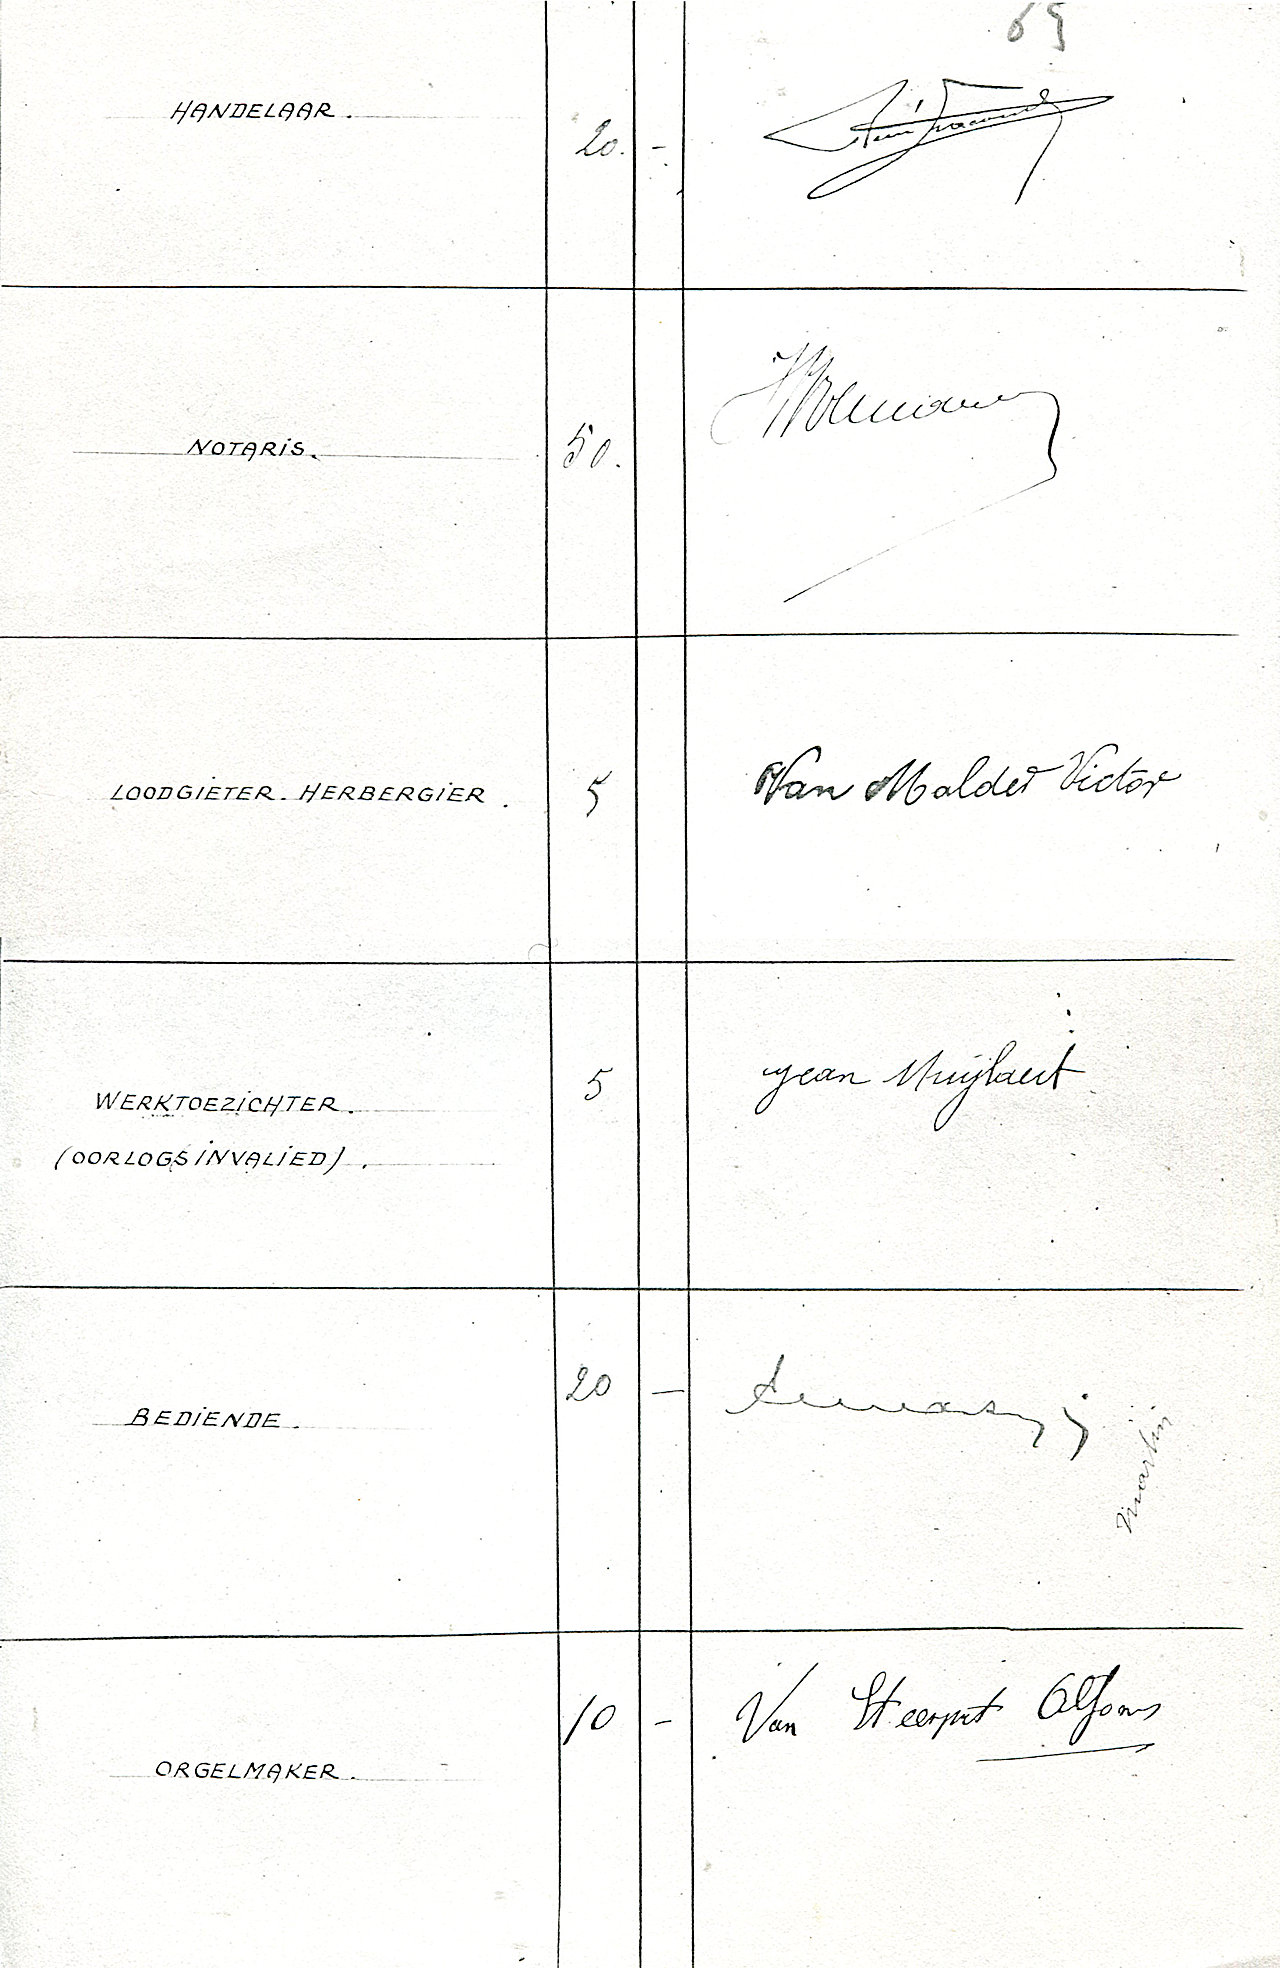 65
HANDELAAR. 20. -
NOTARIS. 50.
LOODGIETER. HERBERGIER. 5 Van Malder Victor
WERKTOEZICHTER. 5 Jean Muylaert
(OORLOGSINVALIED).
BEDIENDE. 20 —
Martin
ORGELMAKER. 10 - Van Steerpit Alfons